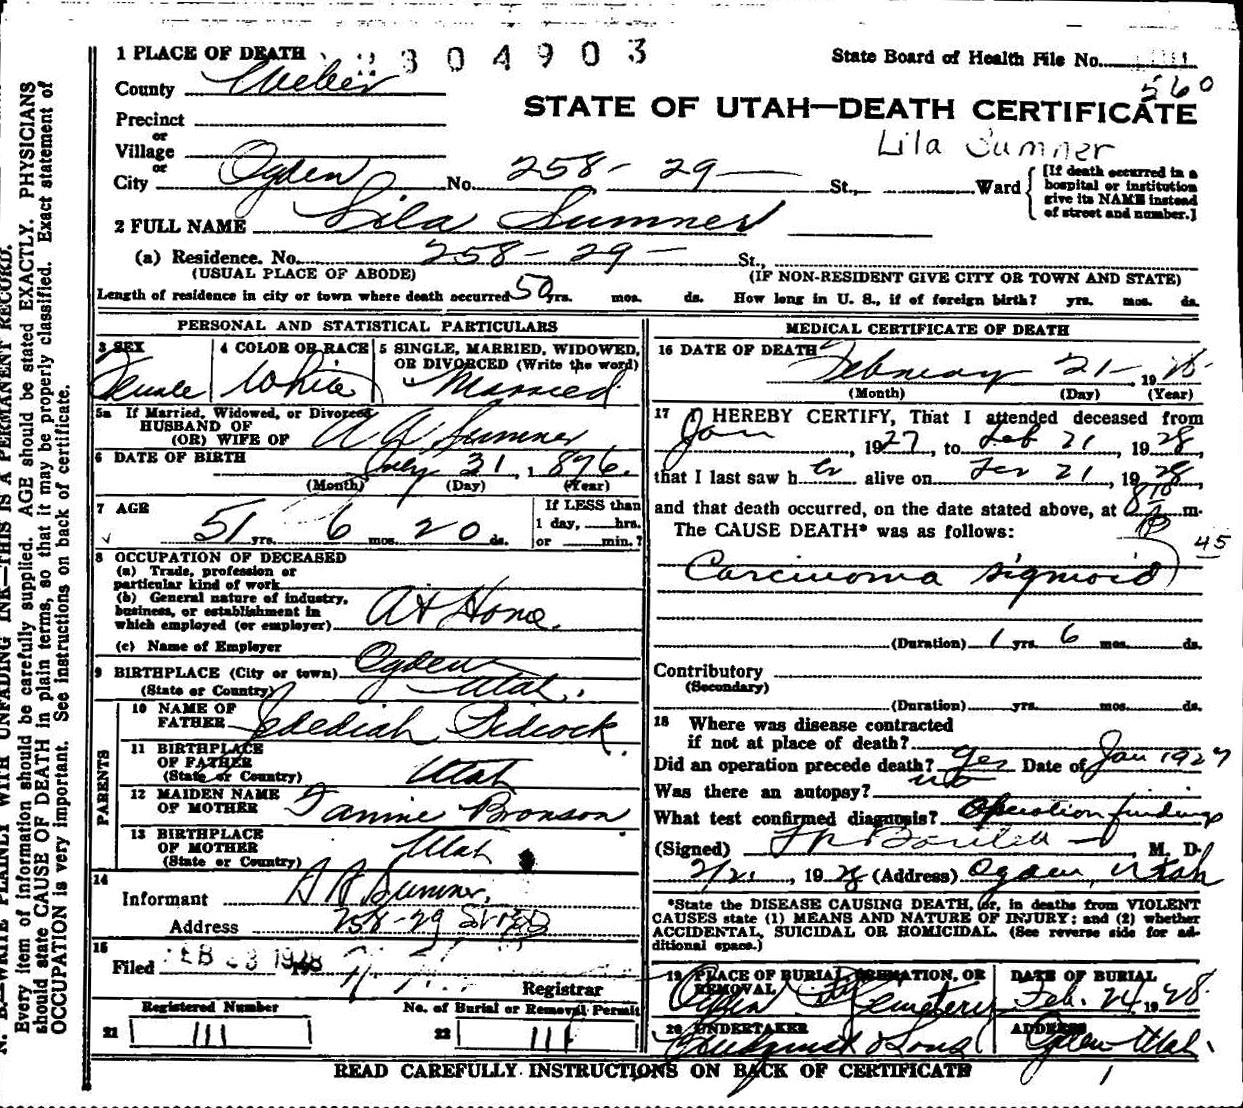 1 PLACE OF DEATH 2304903 State Board of Health File No.
560
County Weber
STATE OF UTAH—DEATH CERTIFICATE
Precinct
or
Village
Lila Sumner
or
City Ogden No. 258 - 29 - St., Ward [If death occurred in a hospital or institution give its NAME instead of street and number.]
2 FULL NAME Lila Sumner
(a) Residence. No. 258 - 29 - St.,
(USUAL PLACE OF ABODE) (IF NON-RESIDENT GIVE CITY OR TOWN AND STATE)
Length of residence in city or town where death occurred 50 yrs. mos. ds. How long in U. S., if of foreign birth? yrs. mos. ds.
PERSONAL AND STATISTICAL PARTICULARS
3 SEX
Female
4 COLOR OR RACE
White
5 SINGLE, MARRIED, WIDOWED,
OR DIVORCED (Write the word)
Married
5a If Married, Widowed, or Divorced
HUSBAND OF
(OR) WIFE OF A A Sumner
6 DATE OF BIRTH July 31, 1876.
(Month) (Day) (Year)
7 AGE
51 yrs. 6 mos. 20 ds.
If LESS than
1 day, hrs.
or min.?
8 OCCUPATION OF DECEASED
(a) Trade, profession or
particular kind of work
(b) General nature of industry,
business, or establishment in
which employed (or employer) At Home.
(c) Name of Employer
9 BIRTHPLACE (City or town) Ogden
(State or Country) Utah.
PARENTS
10 NAME OF
FATHER Jedediah Pidcock.
11 BIRTHPLACE
OF FATHER
(State or Country) Utah
12 MAIDEN NAME
OF MOTHER Tamine Bronson
13 BIRTHPLACE
OF MOTHER
(State or Country) Utah
14
Informant A A Sumner.
Address 258-29 Street
15
Filed FEB 23 1928
Registrar
Registered Number
21 111
No. of Burial or Removal Permit
22 111
MEDICAL CERTIFICATE OF DEATH
16 DATE OF DEATH
February 21 - 1928
(Month) (Day) (Year)
17 I HEREBY CERTIFY, That I attended deceased from
Jan, 1927, to Feb 21, 1928,
that I last saw her alive on Feb 21, 1928,
and that death occurred, on the date stated above, at 8 10 P m.
The CAUSE DEATH* was as follows:
45
Carcinoma sigmoid
(Duration) 1 yrs 6 mos. ds.
Contributory
(Secondary)
(Duration) yrs. mos. ds.
18 Where was disease contracted
if not at place of death?
Did an operation precede death? yes Date of Jan 1927
Was there an autopsy? no
What test confirmed diagnosis? Operation findings
(Signed) M. D.
2/21, 1928 (Address) Ogden, Utah
*State the DISEASE CAUSING DEATH, or, in deaths from VIOLENT
CAUSES state (1) MEANS AND NATURE OF INJURY; and (2) whether
ACCIDENTAL, SUICIDAL OR HOMICIDAL. (See reverse side for ad-
ditional space.)
19 PLACE OF BURIAL, CREMATION, OR
REMOVAL
Ogden City Cemetery
DATE OF BURIAL
Feb. 24 1928
20 UNDERTAKER
& Sons
ADDRESS
Ogden Utah.
READ CAREFULLY INSTRUCTIONS ON BACK OF CERTIFICATE
N. B.—WRITE PLAINLY WITH UNFADING INK—THIS IS A PERMANENT RECORD.
Every item of information should be carefully supplied. AGE should be stated EXACTLY. PHYSICIANS
should state CAUSE OF DEATH in plain terms, so that it may be properly classified. Exact statement of
OCCUPATION is very important. See instructions on back of certificate.